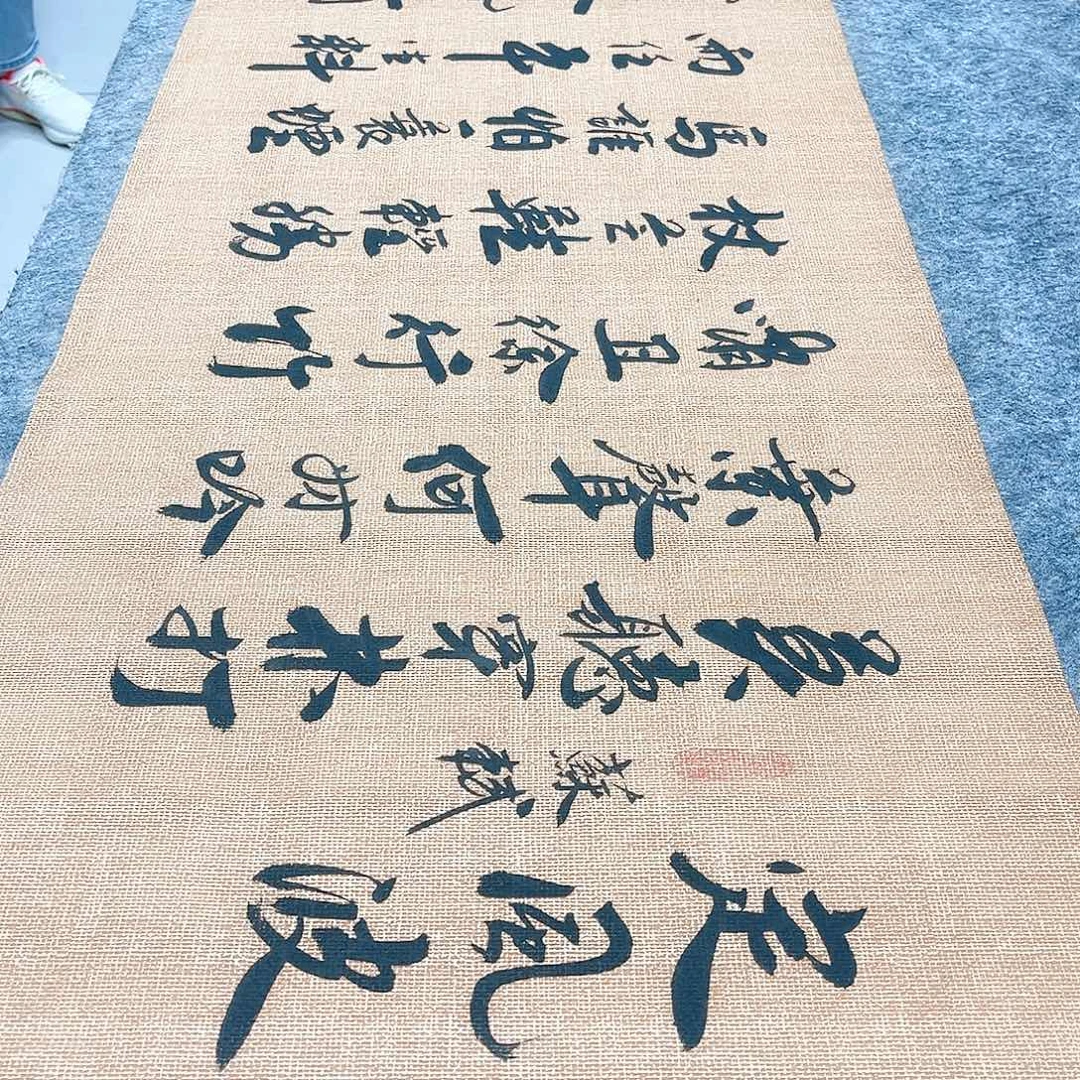 定風波
蘇軾
莫聽穿林打
葉聲何妨吟
嘯且徐行竹
杖芒鞋輕勝
馬誰怕一蓑煙
雨任平生料